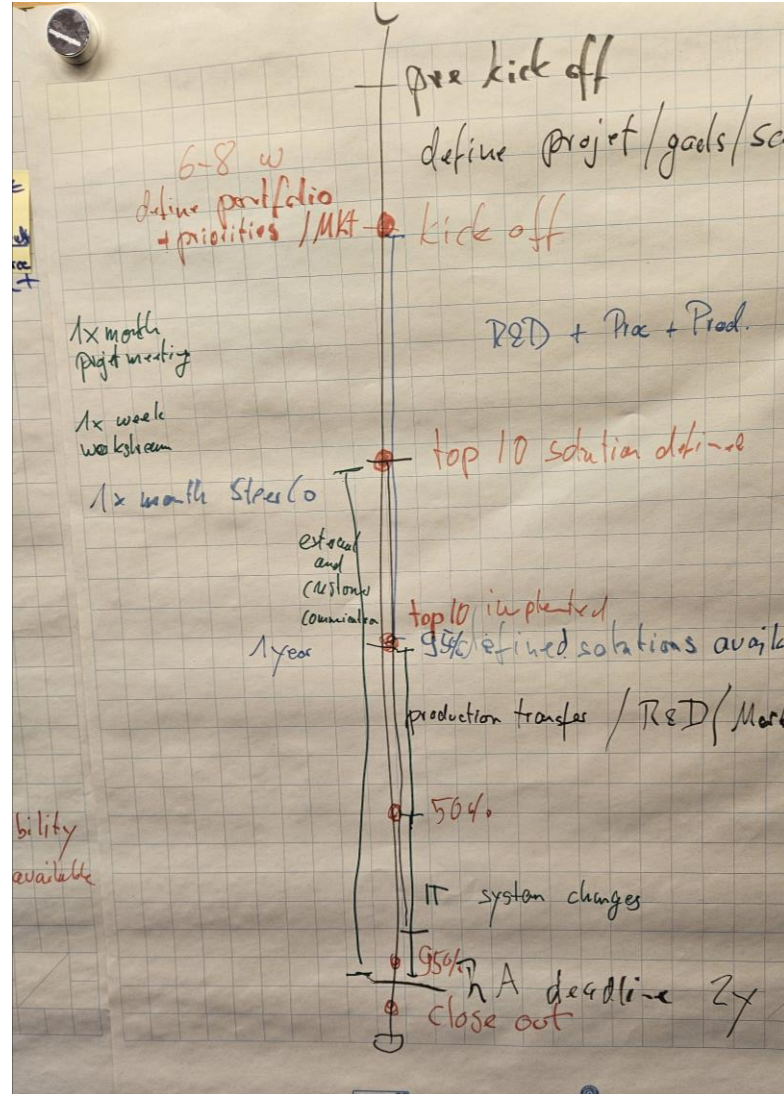 pre kick off
define projet/goals/sc
6-8 w
define portfolio
+ priorities / MKT
kick off
1x month
projet meeting
R&D + Proc + Prod.
1x week
workstream
top 10 solution defined
1x month SteerCo
external
and
customer
communication
top 10 implented
1 year
95% defined solutions avail
production transfer / R&D / Mark
50%
bility
available
IT system changes
95%
deadline 2y
close out